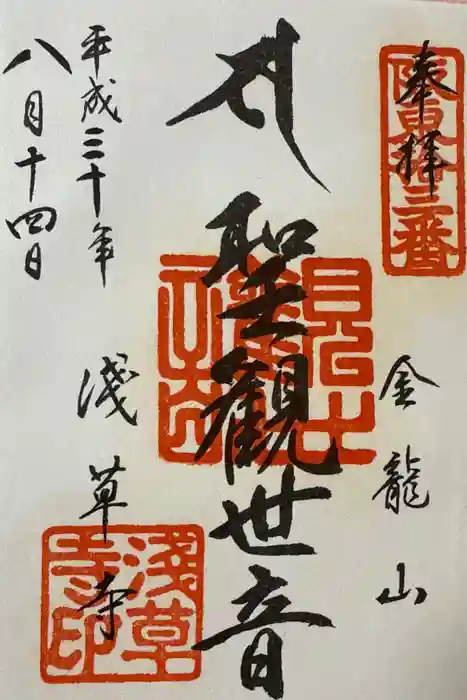 奉拝
坂東十三番
金龍山
聖観世音
浅草寺
淺草寺印
平成三十年
八月十四日